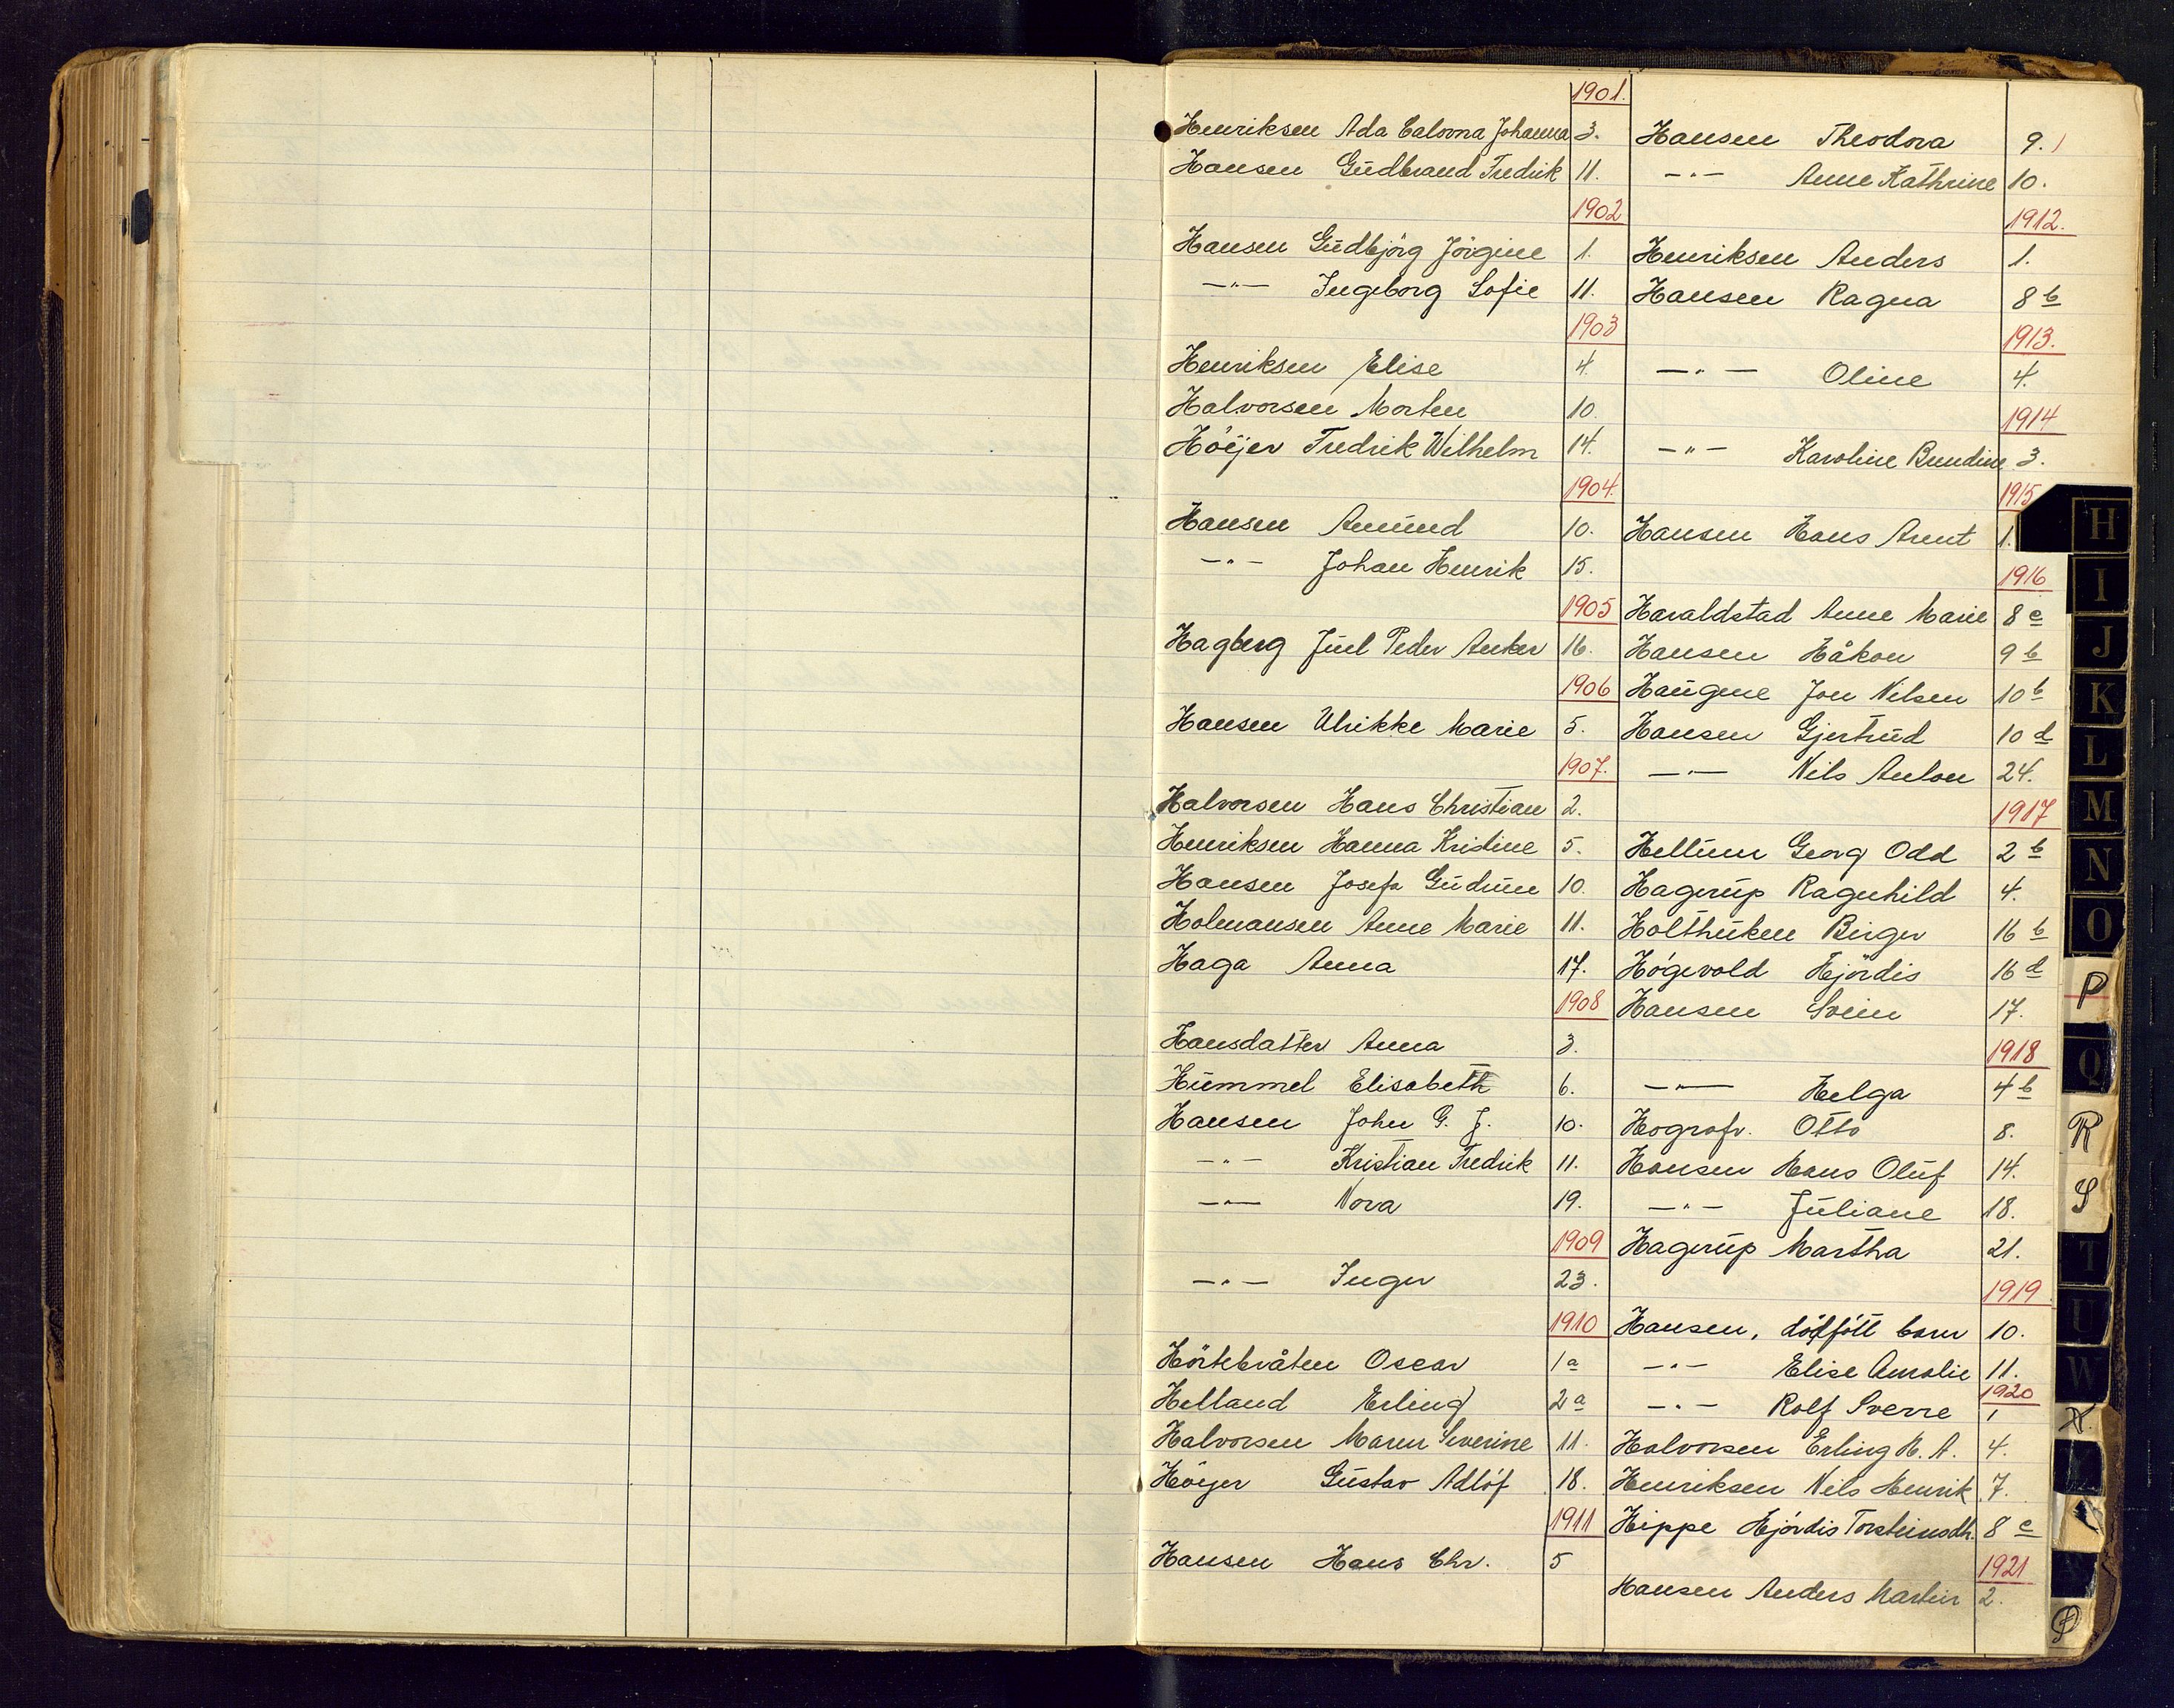 1901.
Henriksen Ada Calovna Johanna 3.
Hansen Gudbrand Fredrik 11.
1902
Hansen Gudbjörg Jörgine 1.
—"— Ingeborg Sofie 11.
1903
Henriksen Elise 4.
Halvorsen Morten 10.
Höijer Fredrik Wilhelm 14.
1904.
Hansen Amund 10.
—"— Johan Henrik 15.
1905
Hagberg Juel Peder Anker 16.
1906
Hansen Ulrikke Marie 5.
1907.
Halvorsen Hans Christian 2.
Henriksen Hanna Kristine 5.
Hansen Josefa Gudrun 10.
Holmansen Anne Marie 11.
Haga Anna 17.
1908
Hansdatter Anna 3.
Hummel Elisabeth 6.
Hansen John G. J. 10.
—"— Kristian Fredrik 11.
—"— Nora 19.
1909
—"— Inger 23.
1910
Hörtebråten Oscar 1a
Helland Erling 2a
Halvorsen Maren Severine 11.
Höijer Gustav Adlöf 18.
1911
Hansen Hans Chr. 5
Hansen Theodora 9.
—"— Anne Kathrine 10.
1912.
Henriksen Anders 1.
Hansen Ragna 8b
1913.
—"— Oline 4.
1914
—"— Karoline Bundine 3.
1915
Hansen Hans Arnt 1.
1916
Haraldstad Anne Marie 8c
Hansen Håkon 9b
Haugene Jon Nilsen 10b
Hansen Gjertrud 10d
—"— Nils Anton 24.
1917
Hellum Georg Odd 2b
Hagerup Ragnhild 4.
Holthuken Birger 16b
Högevold Hjördis 16d
Hansen Svein 17.
1918
—"— Helga 4b
Hografr. Otto 8.
Hansen Hans Oluf 14.
—"— Juliane 18.
Hagerup Martha 21.
1919
Hansen, dödfött barn 10.
—"— Elise Amalie 11.
1920
—"— Rolf Sverre 1
Halvorsen Erling H. A. 4.
Henriksen Nils Henrik 7.
Hippe Hjördis Torsteinsdtr. 8c
1921
Hansen Anders Martin 2.
H
I
J
K
L
M
N
O
P
Q
R
S
T
U
W
X
Ø